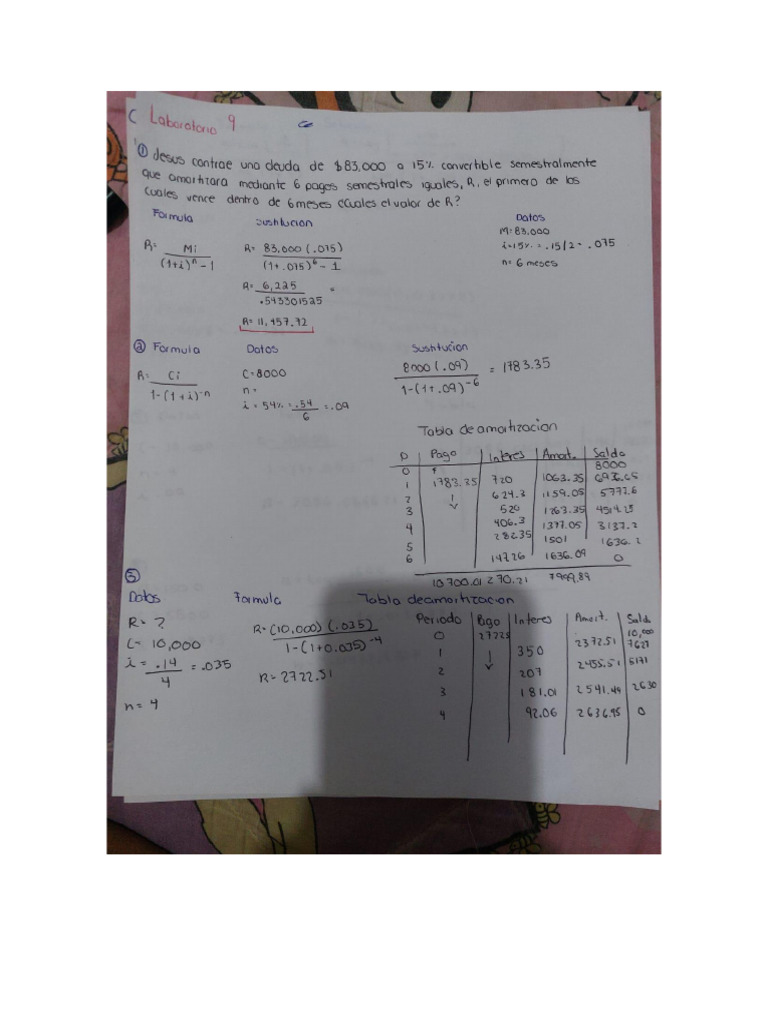 C Laboratorio 9
① Jesus contrae una deuda de $83,000 a 15% convertible semestralmente
que amortizara mediante 6 pagos semestrales iguales, R, el primero de los
cuales vence dentro de 6 meses ¿Cuales el valor de R?
Formula Sustitucion Datos
R= Mi / (1+i)^n - 1 R= 83,000 (.075) / (1+.075)^6 - 1 M= 83,000
i=15% = .15/2 = .075
n= 6 meses
R= 6,225 / .543301525 =
R= 11,457.72
② Formula Datos Sustitucion
R= Ci / 1-(1+i)^-n C=8000 8000 (.09) / 1-(1+.09)^-6 = 1783.35
n=
i = 54% = .54 / 6 = .09
Tabla de amortizacion
P Pago Interes Amort. Saldo
0 8000
1 1783.35 720 1063.35 6936.65
2 624.3 1159.05 5777.6
3 520 1263.35 4514.25
4 406.3 1377.05 3137.2
5 282.35 1501 1636.2
6 147.26 1636.09 0
10 700.01 270.21 7999.89
③
Datos Formula Tabla de amortizacion
R= ? R= (10,000) (.035) / 1-(1+0.035)^-4 Periodo Pago Interes Amort. Saldo
C= 10,000 R= 2722.51 0 27225 10,000
i = .14 / 4 = .035 1 350 2372.51 7627
n= 4 2 207 2455.51 5171
3 181.01 2541.49 2630
4 92.06 2636.45 0